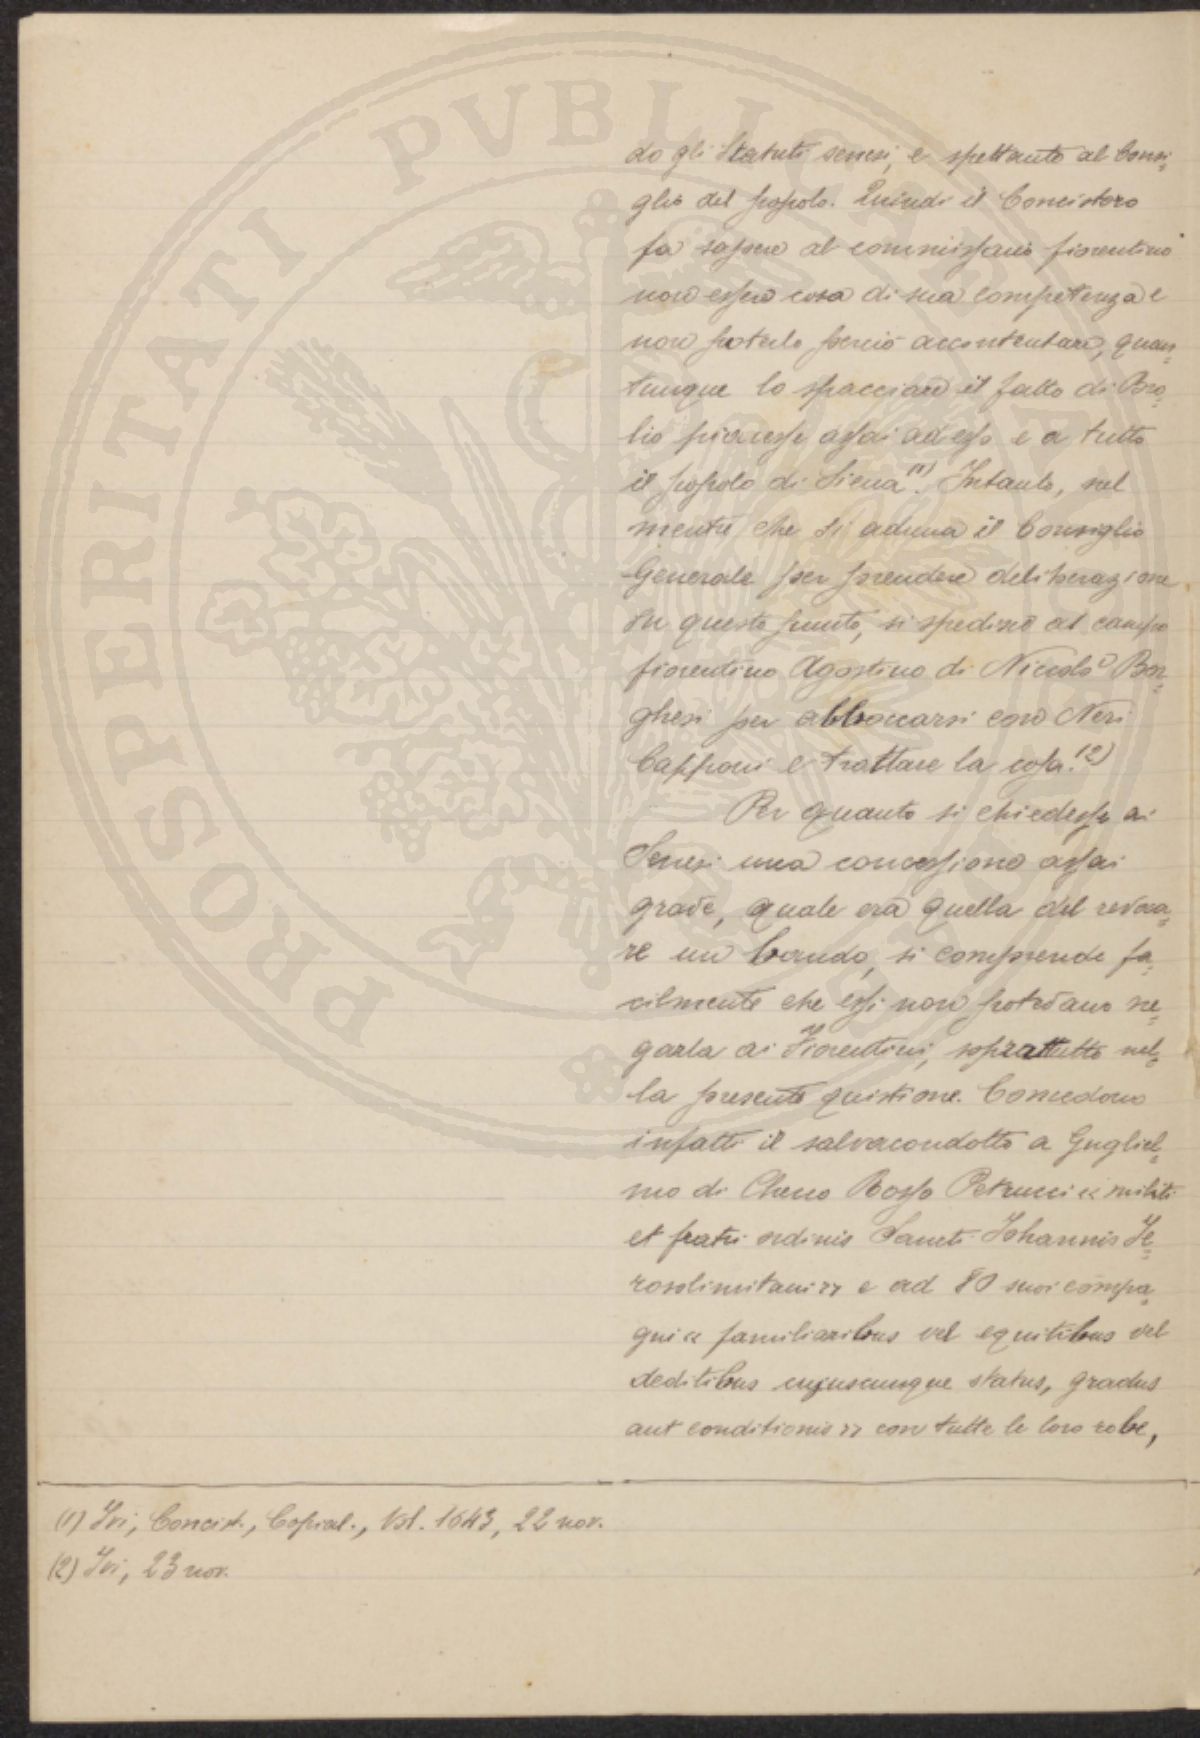 do gli Statuti senesi, e spettante al Consi=
glio del popolo. Quindi il Concistoro
fa sapere al commissario fiorentino
non essere cosa di sua competenza e
non poterlo perciò accontentare, quan=
tunque lo spacciare il fatto di Bro=
lio piacesse assai ad esso e a tutto
il popolo di Siena (1). Intanto, nel
mentre che si aduna il Consiglio
Generale per prendere deliberazione
su questo punto, si spedisce al campo
fiorentino Agostino di Niccolò Bor=
ghesi per abboccarsi con Neri
Capponi e trattare la cosa. (2)
Per quanto si chiedesse ai
Senesi una concessione assai
grave, quale era quella del revoca=
re un bando, si comprende fa=
cilmente che essi non potevano ne=
garla ai Fiorentini, soprattutto nel=
la presente quistione. Concedono
infatti il salvacondotto a Gugliel=
mo di Checco Rosso Petrucci « militi
et fratri ordinis Sancti Johannis Je=
rosolimitani » e ad 80 suoi compa=
gni « familiaribus vel equitibus vel
peditibus cujuscumque status, gradus
aut conditionis » con tutte le loro robe,
(1) Ivi, Concist., Copial., Vol. 1643, 22 nov.
(2) Ivi, 23 nov.
PROSPERITATI PVBLICAE